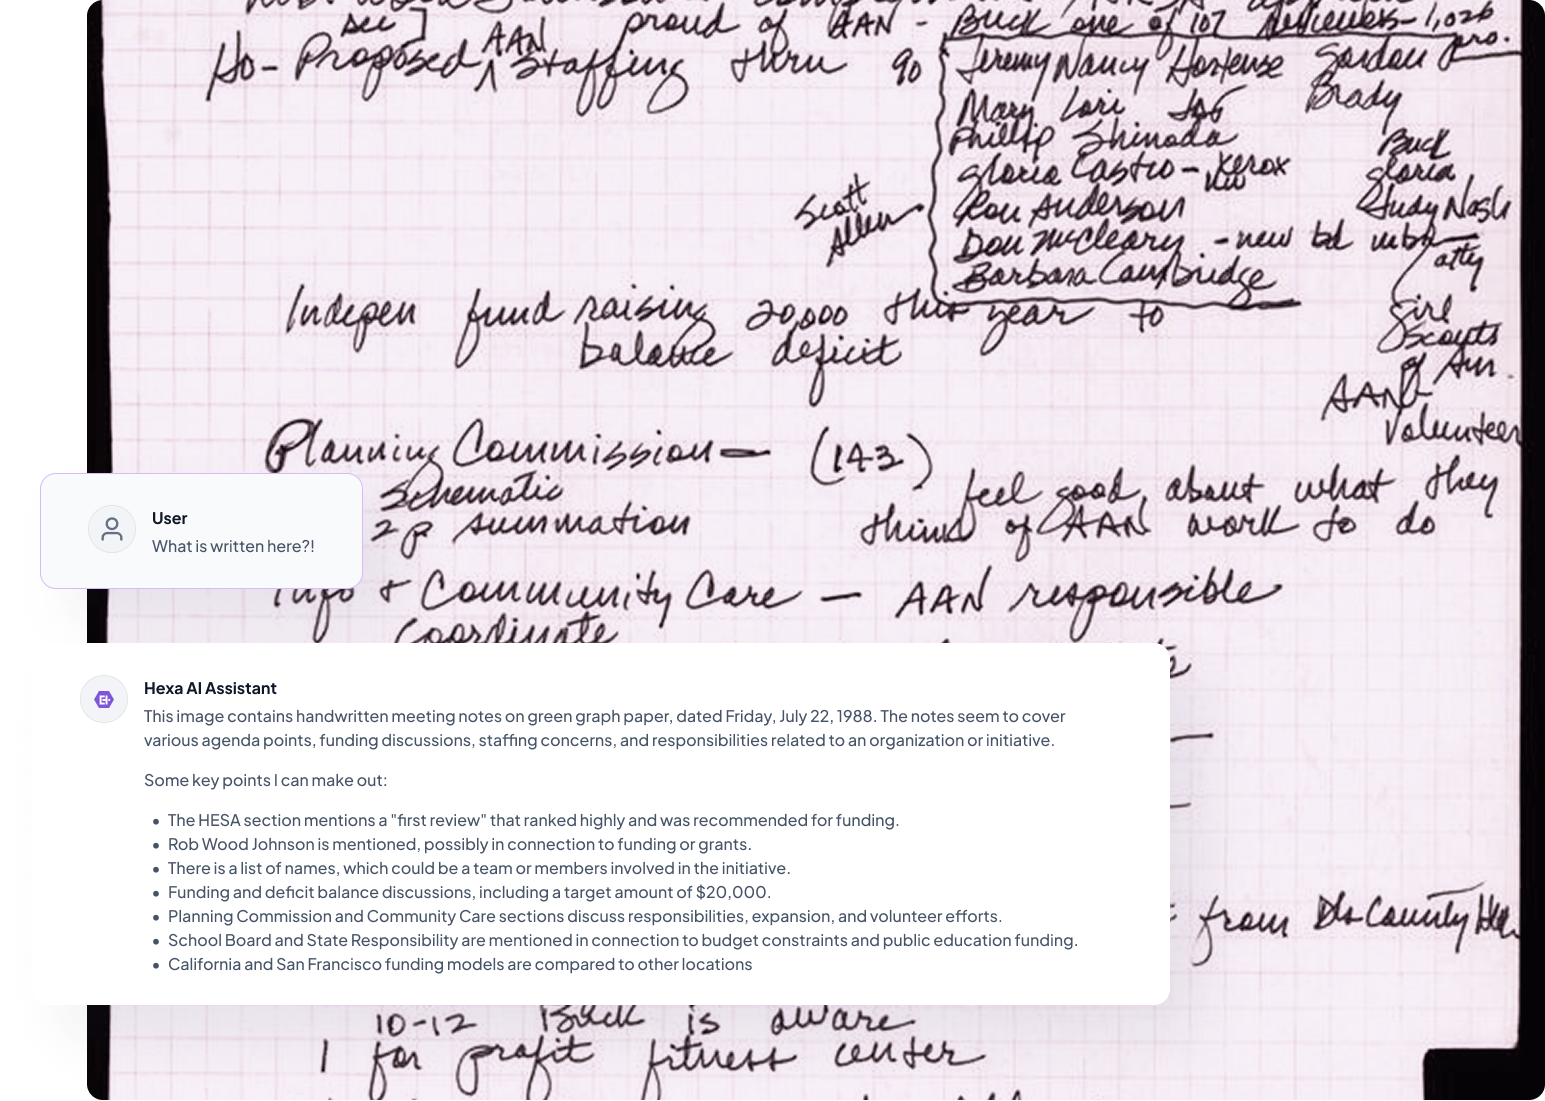 see] proud of AAN - Buck one of 107 Reviewers - 1,026
Ho - Proposed AAN Staffing thru 90
pro.
Jeremy Nancy Hortense Gordon
Brady
Mary Lori
Phillip Shinoda
Gloria Castro - Xerox
Ron Anderson
Don McCleary - new bd mbr
Barbara Cambridge
Scott
Allen
Buck
Gloria
Judy Nash
atty
Girl
Scouts
of Am.
AAN
Volunteer
Indepen fund raising 20,000 this year to
balance deficit
Planning Commission - (143)
Schematic
2p summation
feel good about what they
think of AAN work to do
Info + Community Care - AAN responsible
Coordinate
User
What is written here?!
Hexa AI Assistant
This image contains handwritten meeting notes on green graph paper, dated Friday, July 22, 1988. The notes seem to cover
various agenda points, funding discussions, staffing concerns, and responsibilities related to an organization or initiative.
Some key points I can make out:
• The HESA section mentions a "first review" that ranked highly and was recommended for funding.
• Rob Wood Johnson is mentioned, possibly in connection to funding or grants.
• There is a list of names, which could be a team or members involved in the initiative.
• Funding and deficit balance discussions, including a target amount of $20,000.
• Planning Commission and Community Care sections discuss responsibilities, expansion, and volunteer efforts.
• School Board and State Responsibility are mentioned in connection to budget constraints and public education funding.
• California and San Francisco funding models are compared to other locations
from Dls County
10-12 Buck is aware
1 for profit fitness center